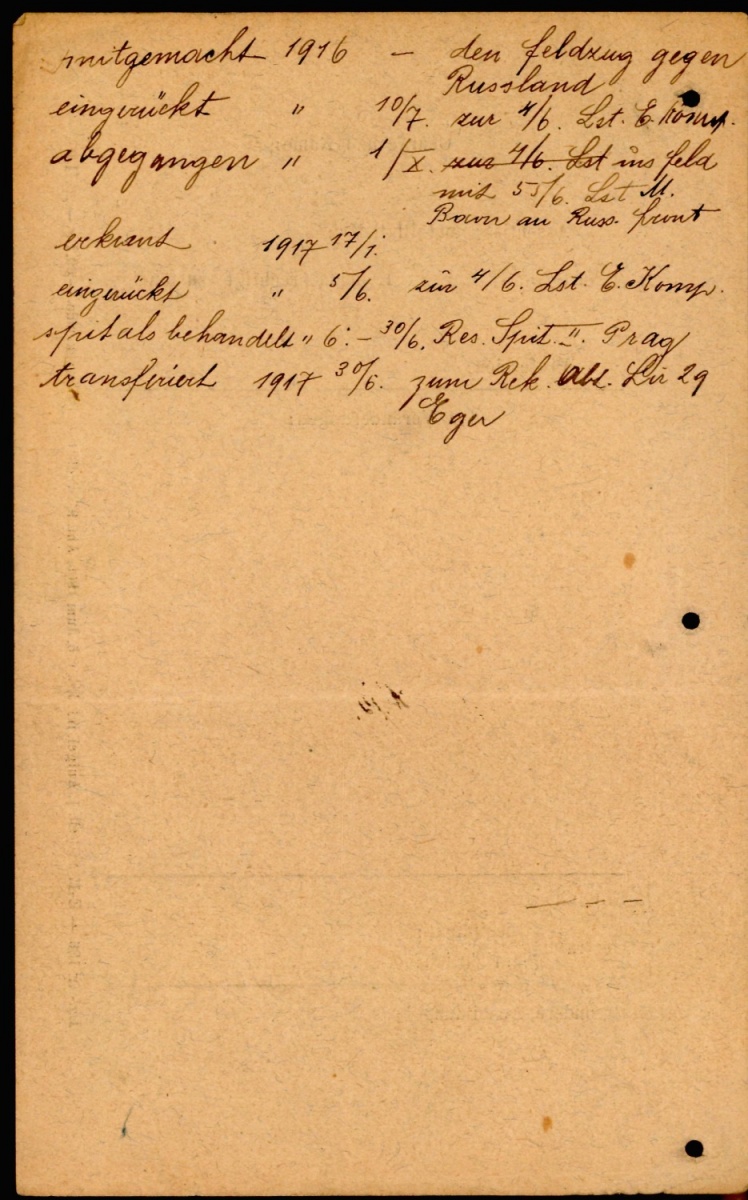 mitgemacht 1916 – den Feldzug gegen
Russland
eingerückt " 10/7. zur 4/6. Lst. E. Komp.
abgegangen " 1/X. zur 4/6. Lst ins Feld
mit 55/6. Lst M.
Baon an Russ. Front
erkrant 1917 17/1.
eingerückt " 5/6. zur 4/6. Lst. E. Komp.
spitals behandelt " 6. – 30/6. Res. Spit. II. Prag
transferiert 1917 30/6. zum Rek. Abt. Lir 29
Eger